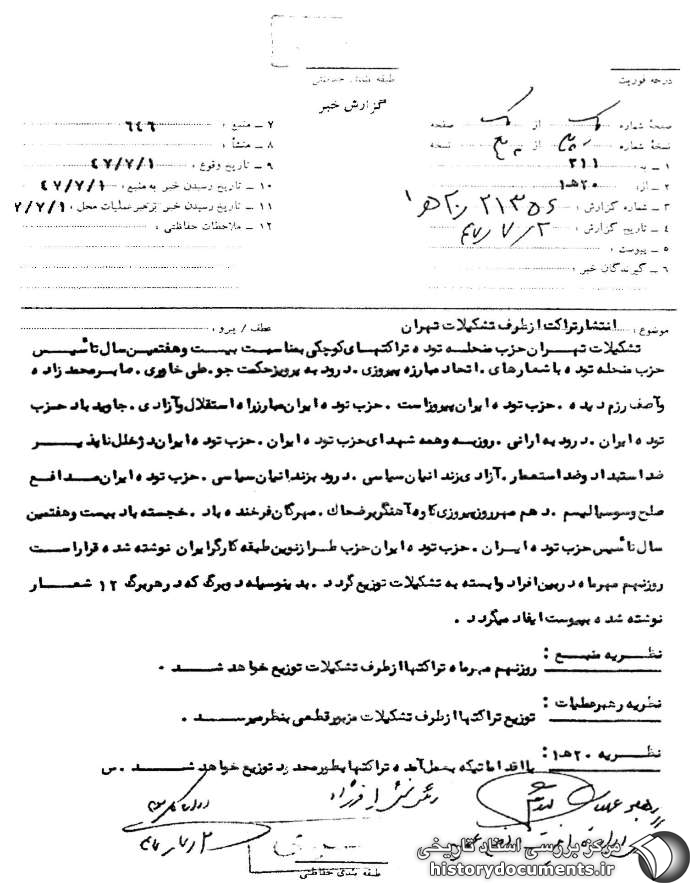 طبقه بندی حفاظتی
درجه فوریت
گزارش خبر
صفحهٔ شماره از صفحه
نسخهٔ شماره از نسخه
۱ ـ به : ۳۱۱
۲ ـ از : ۲۰ ه‍ ۱
۳ ـ شماره گزارش :
۴ ـ تاریخ گزارش : ۴۷/۷/۲
۵ ـ پیوست :
۶ ـ گیرندگان خبر :
۷ ـ منبع : ۶۴۶
۸ ـ منشأ :
۹ ـ تاریخ وقوع : ۴۷/۷/۱
۱۰ ـ تاریخ رسیدن خبر به منبع : ۴۷/۷/۱
۱۱ ـ تاریخ رسیدن خبر برهبر عملیات محل : ۷/۷/۱
۱۲ ـ ملاحظات حفاظتی :
موضوع : انتشار تراکت از طرف تشکیلات تهران
عطف / پیرو :
تشکیلات تهران حزب منحله توده تراکتهای کوچکی بمناسبت بیست و هفتمین سال تأسیس
حزب منحله توده با شعارهای . اتحاد مبارزه پیروزی . درود به پرویز حکمت جو . علی خاوری . صابر محمد زاده
و آصف رزم دیده . حزب توده ایران پیروز است . حزب توده ایران مبارز راه استقلال و آزادی . جاوید باد حزب
توده ایران . درود به ارانی . روزبه و همه شهدای حزب توده ایران . حزب توده ایران دژ خلل ناپذیر
ضد استبداد و ضد استعمار . آزادی زندانیان سیاسی . درود بزندانیان سیاسی . حزب توده ایران مدافع
صلح و سوسیالیسم . دهم مهر روز پیروزی کاوه آهنگر بر ضحاک . مهرگان فرخنده باد . خجسته باد بیست و هفتمین
سال تأسیس حزب توده ایران . حزب توده ایران حزب طراز نوین طبقه کارگر ایران نوشته شده قرار است
روز نهم مهر ماه در بین افراد وابسته به تشکیلات توزیع گردد . بدینوسیله دو برگ که در هر برگ ۱۲ شعار
نوشته شده بپیوست ایفاد میگردد .
نظریه منبع : روز نهم مهر ماه تراکتها از طرف تشکیلات توزیع خواهد شد .
نظریه رهبر عملیات : توزیع تراکتها از طرف تشکیلات مزبور قطعی بنظر میرسد .
نظریه ۲۰ ه‍ ۱ : با اقداماتیکه بعمل آمده تراکتها بطور محدود توزیع خواهد شد . س
رهبر عملیات
۴۷/۷/۲
طبقه بندی حفاظتی
مرکز بررسی اسناد تاریخی
historydocuments.ir